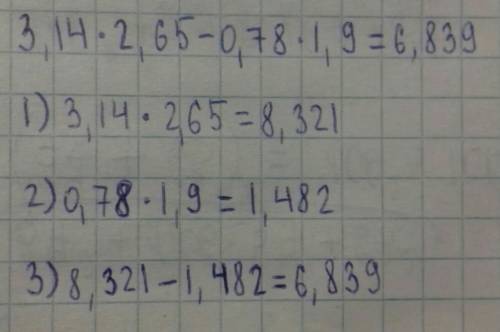 3,14·2,65-0,78·1,9=6,839
1) 3,14·2,65=8,321
2) 0,78·1,9=1,482
3) 8,321-1,482=6,839